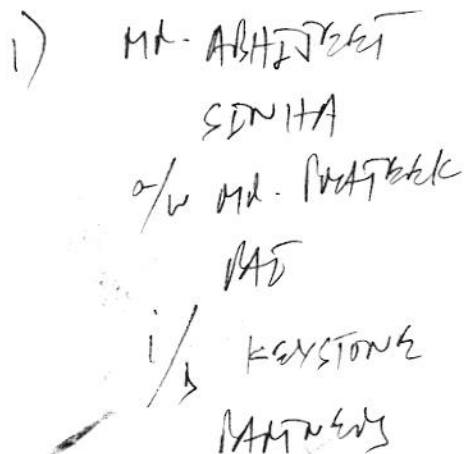 1) Mr. ABHIJEET
SINHA
a/w Mr. PRATEEK
PAI
i/b KEYSTONE
PARTNERS